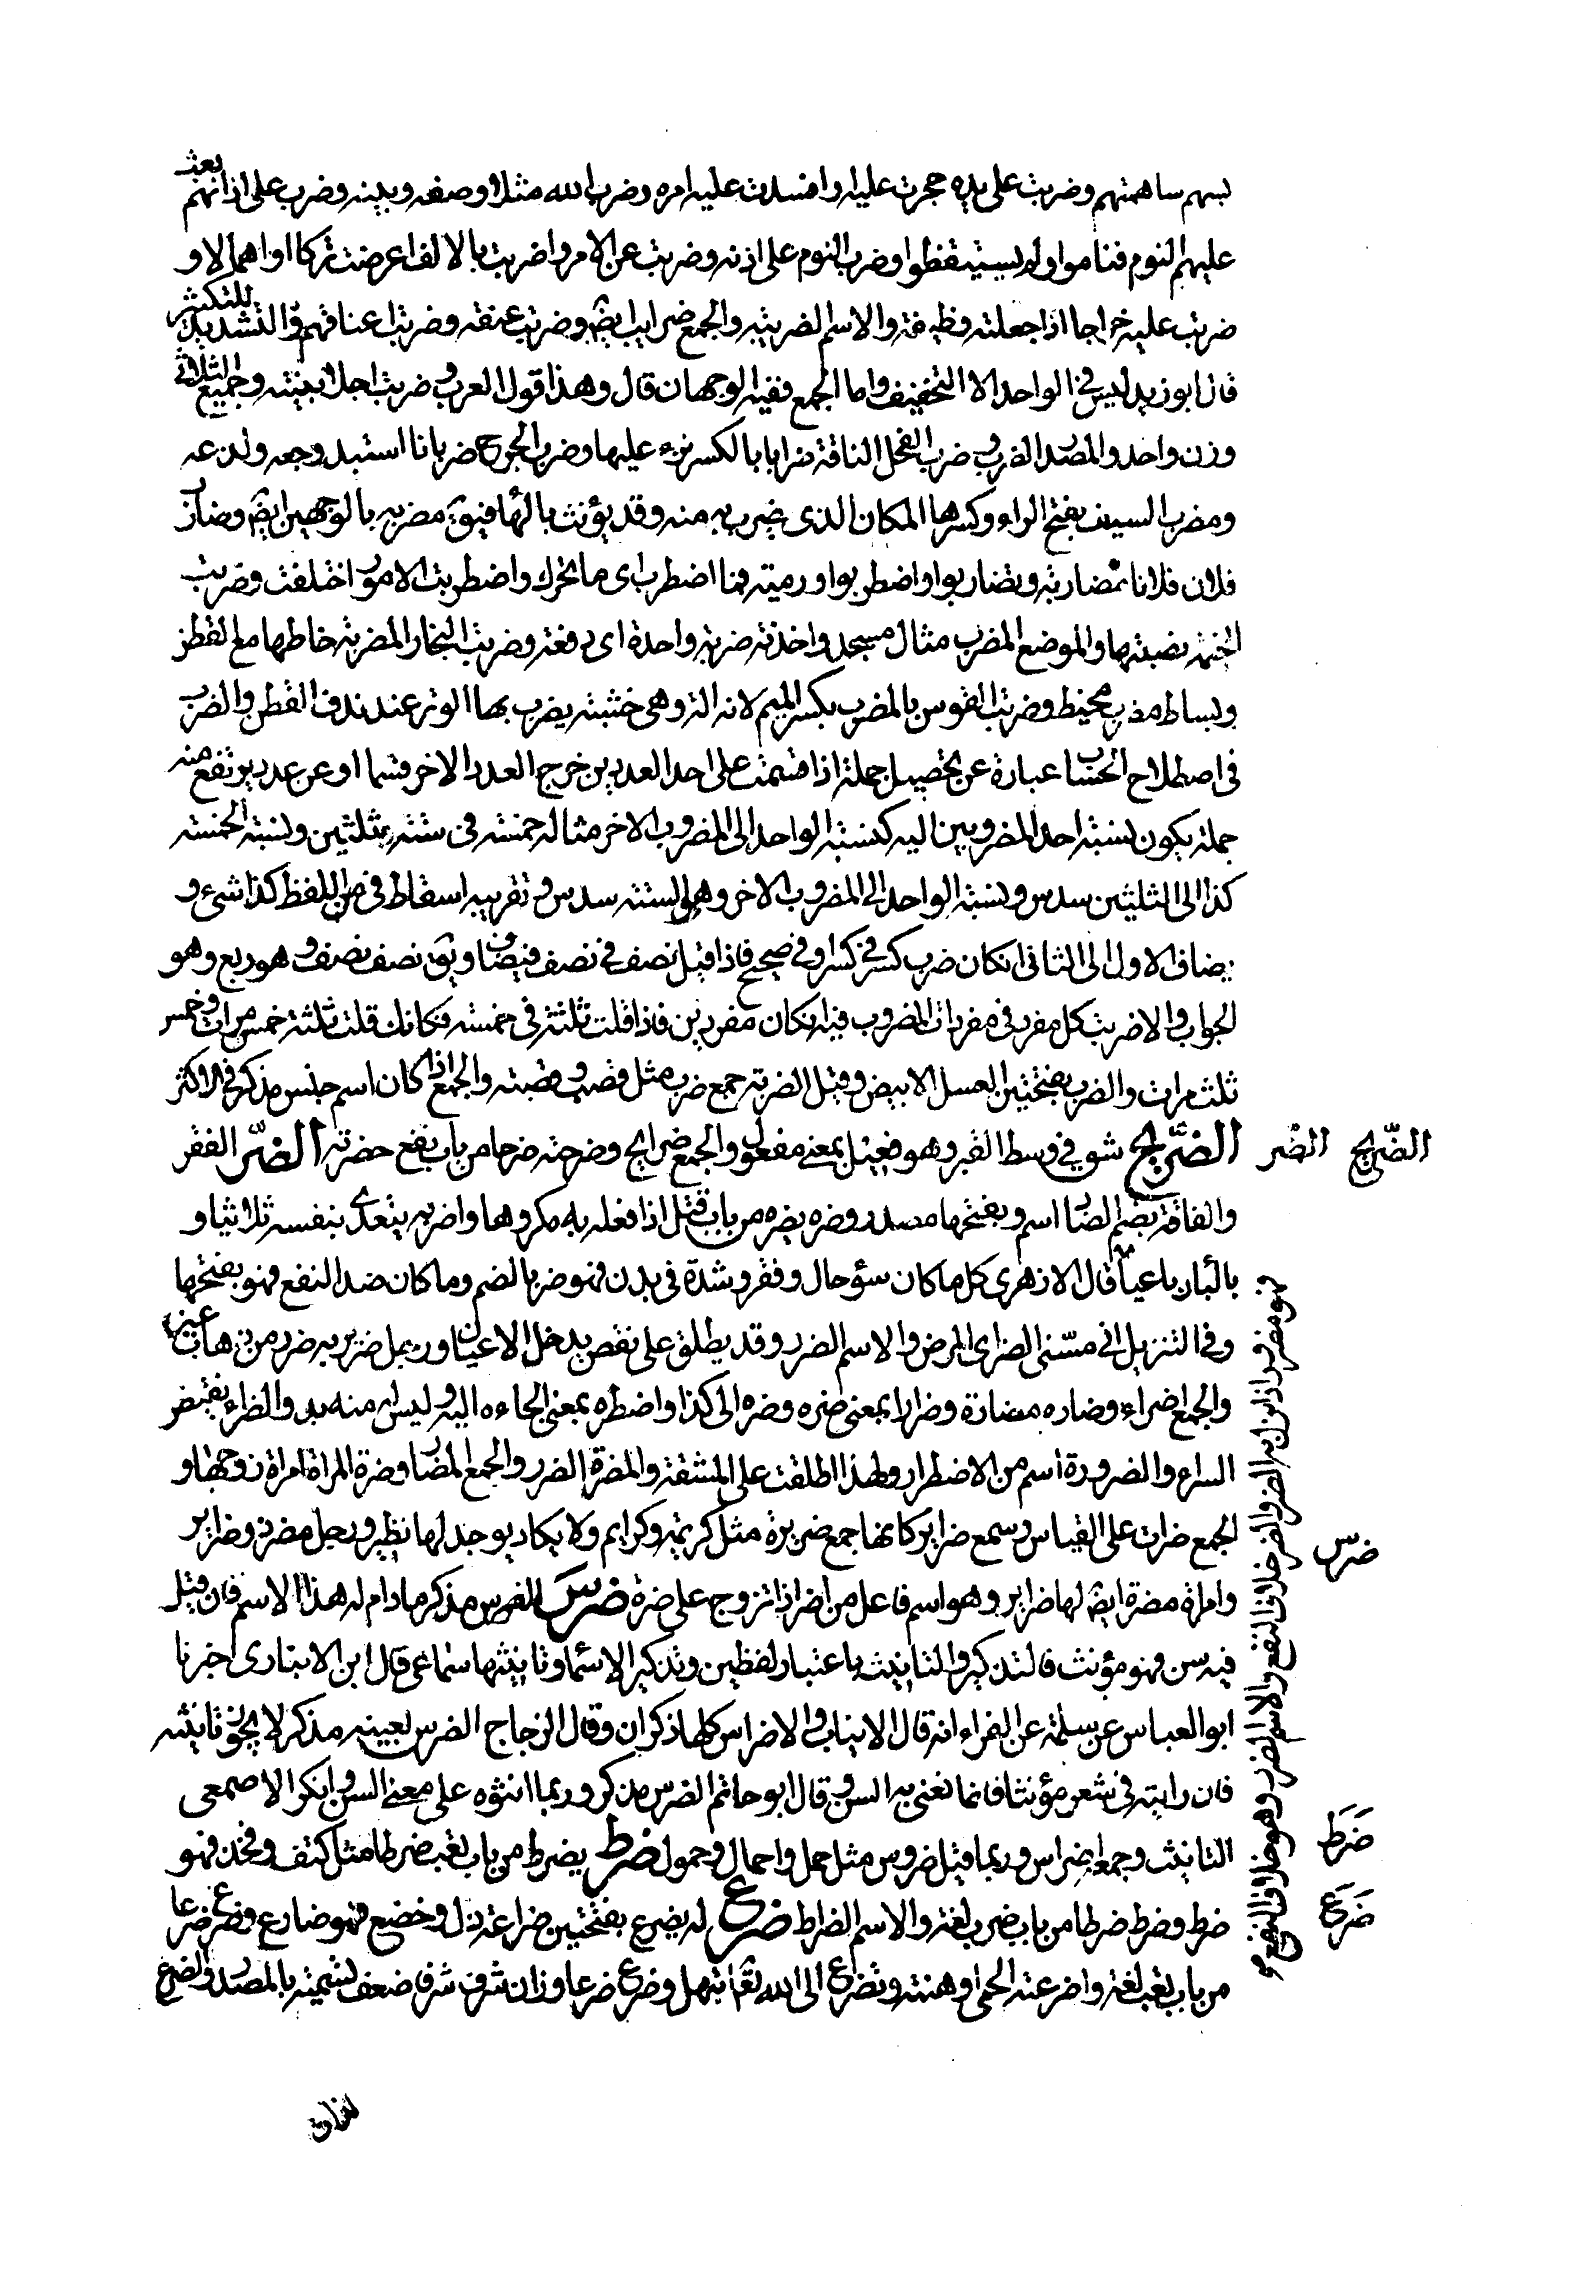 بسهم ساهمتهم وضربت على يده حجرت عليه او افسدت عليه امره وضرب الله مثلا وصفه وبينه وضرب على اذانهم بعث
عليهم النوم فناموا ولم يستيقظوا وضرب النوم على اذنه وضربت عن الامر واضربت بالالف اعرضت تركا او اهمالا و
ضربت عليه خراجا اذا جعلته وظيفة والاسم الضريبة والجمع ضرايب ايضا وضربت عنقه وضربت اعناقهم والتشديد للتكثير
قال ابو زيد ليس في الواحد الا التخفيف واما الجمع ففيه الوجهان قال وهذا قول العرب و ضربت اجلا بينته وجميع الثلاثي
وزن واحد والمصدر الضرب و ضرب الفحل الناقة ضرابا بالكسر نزء عليها وضرب الجرح ضربانا استبد وجعه ولدعه
ومضرب السيف بفتح الراء وكسرها المكان الذى يضرب به منه وقد يؤنث بالهاء فيق مضربه بالوجهين ايضا وضارب
فلان فلانا مضاربة وتضاربوا واضطربوا ورميته فما اضطرب اى ما تحرك واضطربت الامور اختلفت وضربت
الخيمة نصبتها والموضع المضرب مثال مسجد واخذته ضربة واحدة اى دفعة وضربت البخار المضربة خاطها مع القطن
وبساط مضرب مخيط وضربت القوس بالمضرب بكسر الميم لانه الة وهى خشبة يضرب بها الوتر عند ندف القطن والضرب
فى اصطلاح الحساب عبارة عن تحصيل جملة اذا قسمت على احد العددين خرج العدد الاخر قسما او عن عدد يرتفع منه
جملة يكون نسبة احد المضروبين اليه كنسبة الواحد الى المضروب الاخر مثاله خمسة فى ستة بثلثين ونسبة الخمسة
كذا الى الثلثين سدس ونسبة الواحد الى المضروب الاخر وهى الستة سدس و تقريبه اسقاط فى من اللفظ كذا شىء و
يضاف الاول الى الثانى ان كان ضرب كسر فى كسر او فى صحيح فاذا قيل نصف فى نصف فيضاف ويق نصف نصف و هو ربع وهو
الجواب والا ضربت كل مفرد فى مفردات المضروب فيه ان كان مفردين فاذا قلت ثلثة فى خمسة فكانك قلت ثلثة خمس مرات وخمسر
ثلث مرات والضرب بفتحتين العسل الابيض و قيل الضربة جمع ضرب مثل قصب و قصبة والجمع اذا كان اسم جنس مذكر فى الاكثر
الضريح شق فى وسط القبر وهو فعيل بمعنى مفعول والجمع ضرايح وضرحته ضرحا من باب نفع حفرته الضر الفقر
الضريح الضر
والفاقة بضم الضاد اسم و بفتحها مصدر وضره يضره من باب قتل اذا فعل به مكروها واضر به يتعدى بنفسه ثلاثيا و
بالباء رباعيا قال الازهرى كل ما كان سؤ حال وفقر و شدة فى بدن فهو ضر بالضم وما كان ضد النفع فهو بفتحها
وفى التنزيل انى مسنى الضر اى المرض والاسم الضرر وقد يطلق على نقص يدخل الاعيان ورجل ضرير به ضرر من ذهاب عين
والجمع اضراء وضاره مضارة وضرارا بمعنى ضره وضره الى كذا واضطره بمعنى الجاءه اليه و ليس له منه بد والضراء نقيض
السراء والضرورة اسم من الاضطرار ولهذا اطلقت على المشقة والمضرة الضرر والجمع المضار وضرة المراة امراة زوجها و
الجمع ضرات على القياس وسمع ضراير كانها جمع ضريرة مثل كريمة وكرايم ولا يكاد يوجد لها نظير ورجل مضر ذو ضراير
وامراة مضرة ايضا لها ضراير وهو اسم فاعل من اضر اذا تزوج على ضرة ضرس الضرس مذكر ما دام له هذا الاسم فان قيل
ضرس
فيه سن فهو مؤنث فالتذكير والتانيث باعتبار لفظين وتذكير الاسماء وتانيثها سماعى قال ابن الانبارى اخبرنا
ابو العباس عن سلمة عن الفراء انه قال الانياب والاضراس كلها ذكران وقال الزجاج الضرس بعينه مذكر لا يجوز تانيثه
فان رايته فى شعر مؤنثا فانما نعنى به السن و قال ابو حاتم الضرس مذكر وربما انثوه على معنى السن و انكر الاصمعى
التانيث وجمعه اضراس وربما قيل ضروس مثل حمل واحمال وحمول ضرط يضرط من باب تعب ضرطا مثل كتف وفخذ فهو
ضَرَط
ضرط وضرط ضرطا من باب ضرب لغة والاسم الضراط ضرع له يضرع بفتحتين ضراعة ذل وخضع فهو ضارع وضرع ضرعا
ضَرَع
من باب تعب لغة واضرعته الحمى اوهنته وتضرع الى الله تعالى ابتهل وضرع ضرعا وزان شرف شرفا ضعف تسمية بالمصدر والضرع
فهو مضرور اذا نزل به الضر والضر خلاف النفع والاسم الضرر وهو خلاف النفع